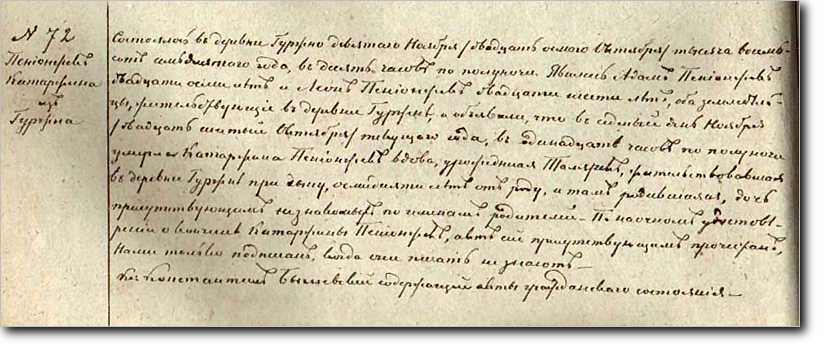 N 72
Пенiонжекъ
Катаржина
изъ
Гуржна
Состоялось въ деревни Гуржно девятаго Ноября /двадцать осьмаго Октября/ тысяча восемь-
сотъ года, въ десять часовъ по полуночи. Явились Адамъ Пенiонжекъ
двадцати осьми летъ и Леонъ Пенiонжекъ двадцати шести летъ, оба земледель-
цы, жительствующiе въ деревни Гуржне, и объявили, что въ седьмый день Ноября
/двадцать шестый Октября/ текущаго года, въ одинадцать часовъ по полуночи
умерла Катаржина Пенiонжекъ вдова, урожденная жительствовавшая
въ деревни Гуржне при сыну, летъ отъ роду, и тамъ родившаяся, дочь
присутствующимъ неизнакомыхъ по именамъ родителей. По наочномъ удостове-
ренiи о кончине Катаржины Пенiонжекъ, актъ сей присутствующимъ прочитанъ,
Нами только подписанъ, когда они писать не знаютъ.
Кс. Константинъ содержащiй акты гражданскаго состоянiя